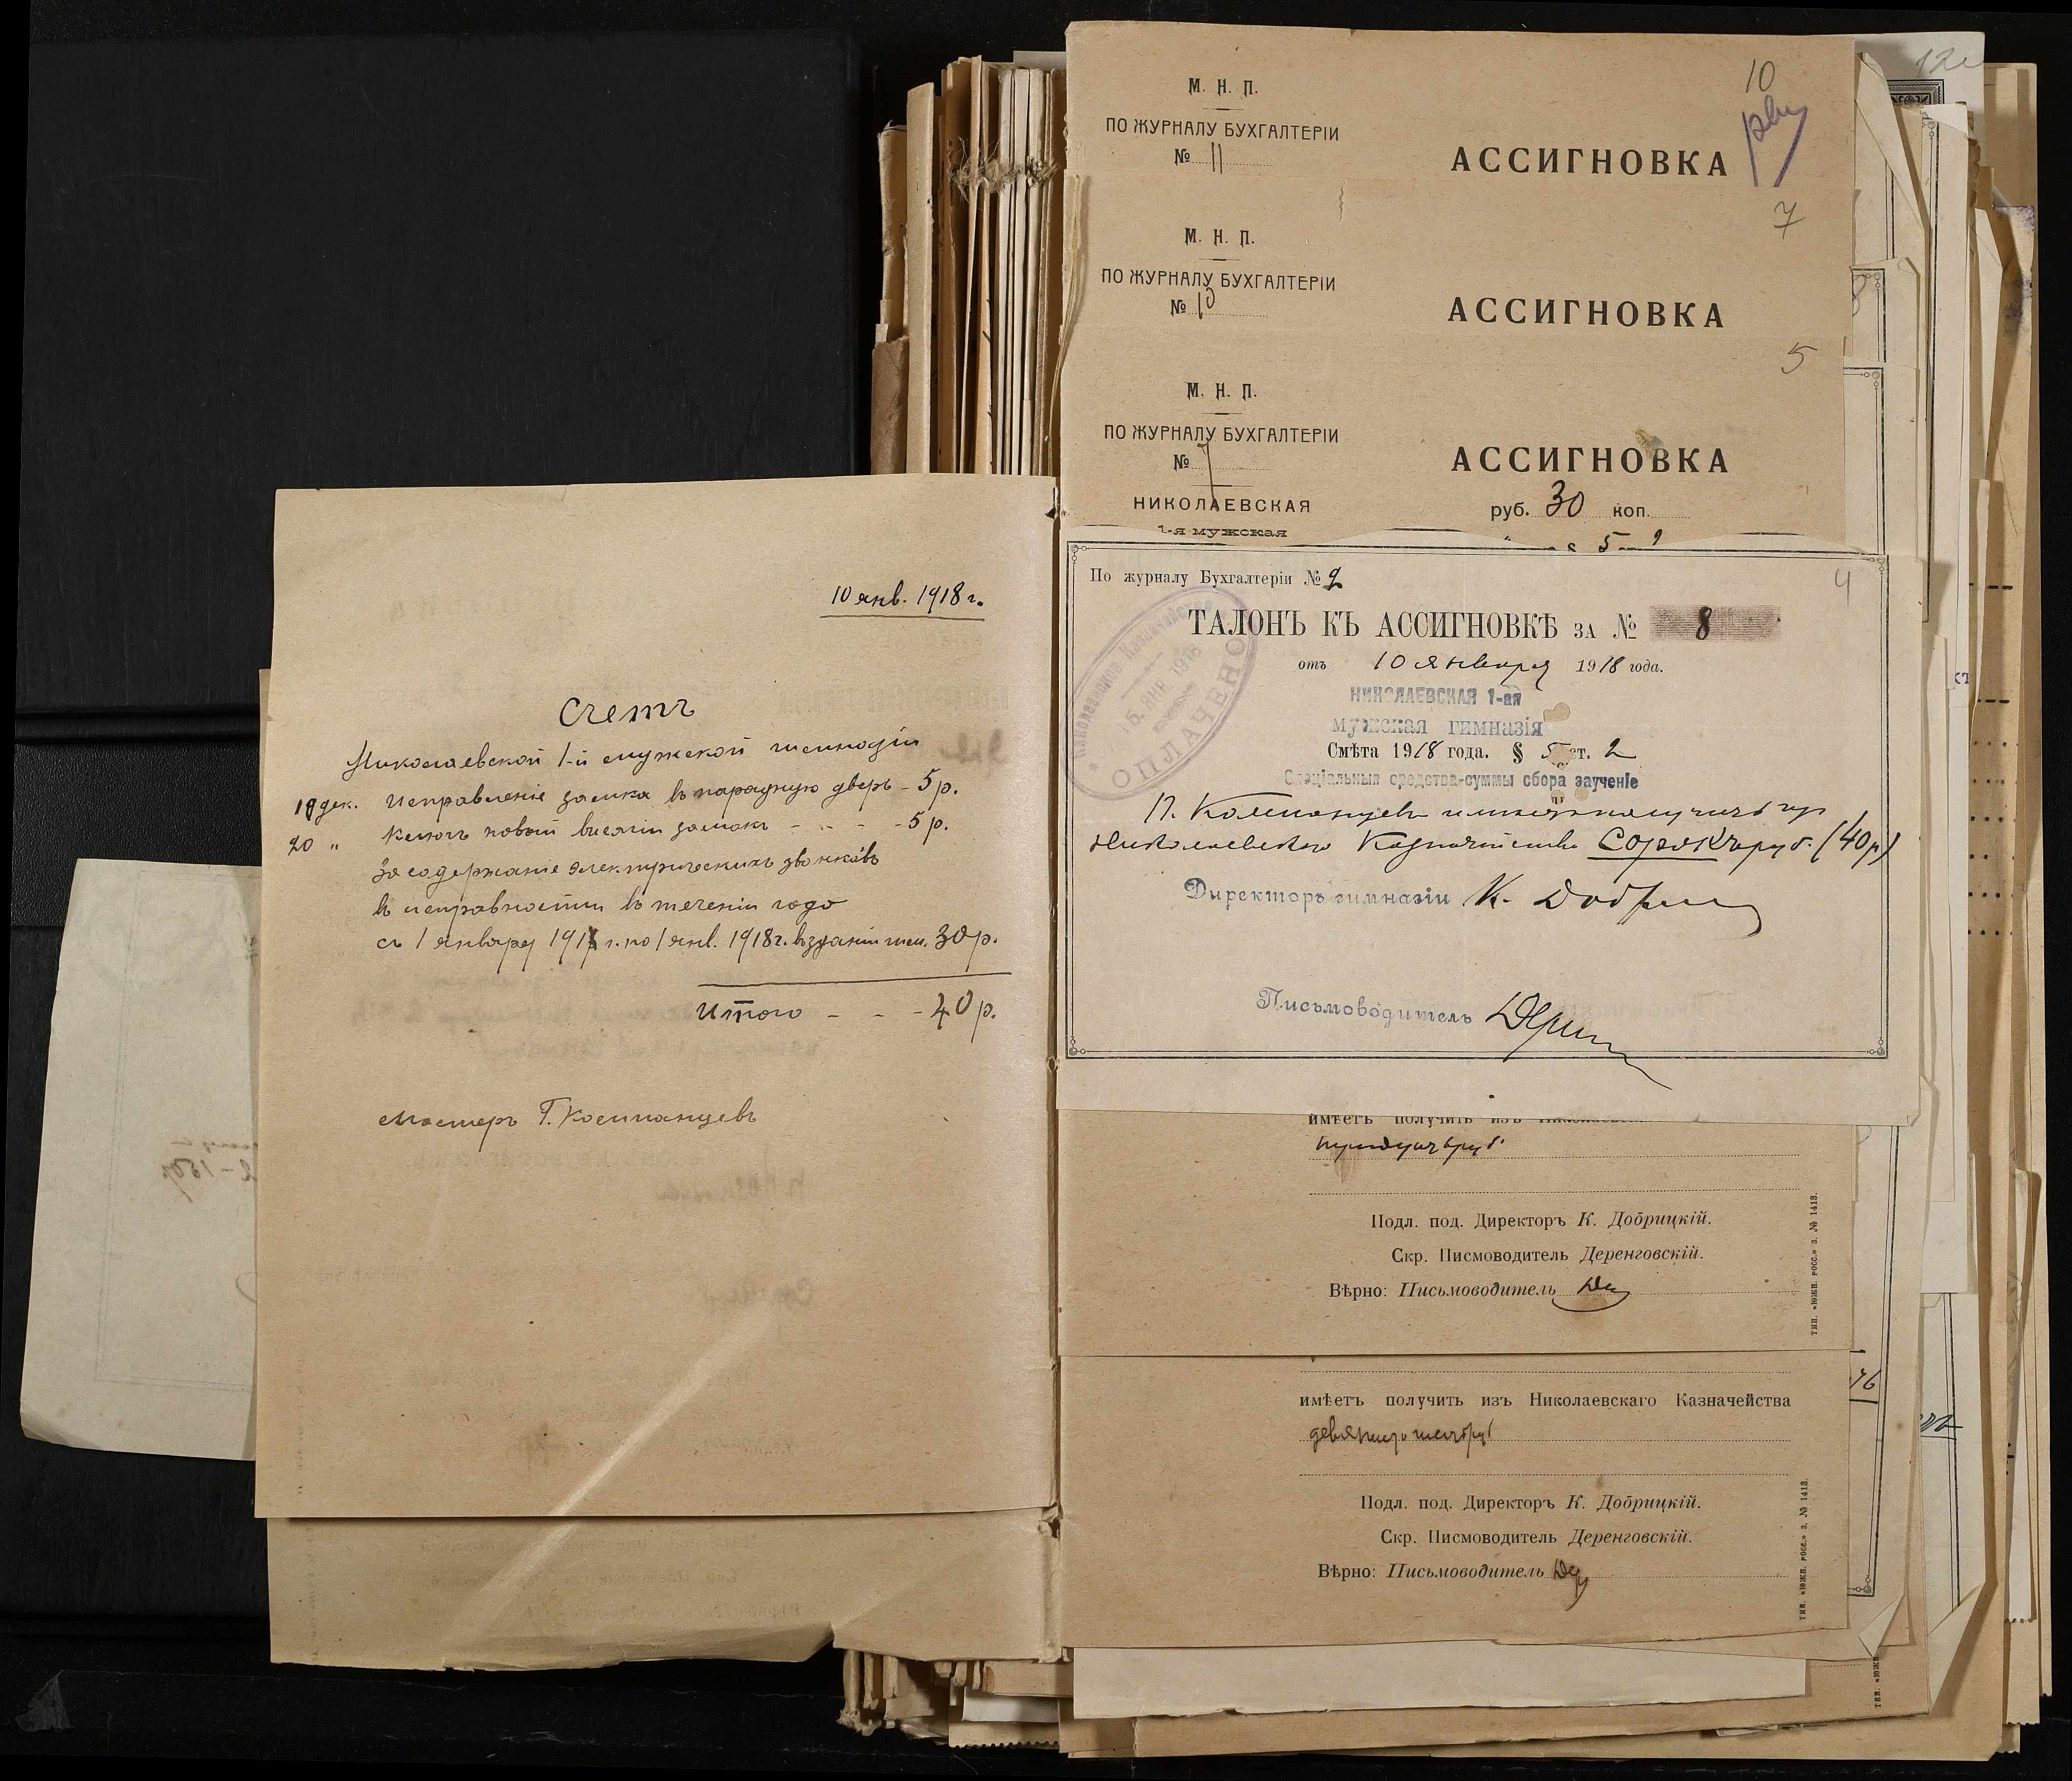 10 янв. 1918 г.
Счетъ
Николаевской 1-й мужской гимназіи
19 дек. Исправленіе замка въ парадную дверь - 5 р.
20 " Ключъ новый висячій замокъ - - - - 5 р.
За содержаніе электрическихъ звонковъ
въ исправности въ теченіи года
съ 1 января 1917 г. по 1 янв. 1918 г. въ зданіи гим. 30 р.
Итого - - - 40 р.
Мастеръ Г. Колпанцевъ
12
10
М. Н. П.
ПО ЖУРНАЛУ БУХГАЛТЕРІИ
№ 11
АССИГНОВКА
7
М. Н. П.
ПО ЖУРНАЛУ БУХГАЛТЕРІИ
№ 10
АССИГНОВКА
5
М. Н. П.
ПО ЖУРНАЛУ БУХГАЛТЕРІИ
№ 7
АССИГНОВКА
НИКОЛАЕВСКАЯ
руб. 30 коп.
1-я мужская
§ 5
По журналу Бухгалтеріи № 9
4
ТАЛОНЪ КЪ АССИГНОВКѢ ЗА № 8
отъ 10 января 1918 года.
НИКОЛАЕВСКАЯ 1-ая
мужская гимназія
Смѣта 1918 года. § 5 ст. 2
Спеціальныя средства-суммы сбора за ученіе
Николаевское Казначейство
15. ЯНВ 1918
ОПЛАЧЕНО
Г. Колпанцевъ имѣетъ получить изъ
Николаевскаго Казначейства Сорокъ руб. (40 р)
Директоръ гимназіи К. Добриц
Письмоводитель Дерин
имѣетъ получить изъ
тридцать руб.
Подл. под. Директоръ К. Добрицкій.
Скр. Писмоводитель Деренговскій.
Вѣрно: Письмоводитель
ТИП. «ЮЖН. РОСС.» З. № 1413.
имѣетъ получить изъ Николаевскаго Казначейства
девяносто шесть руб
Подл. под. Директоръ К. Добрицкій.
Скр. Писмоводитель Деренговскій.
Вѣрно: Письмоводитель
ТИП. «ЮЖН. РОСС.» З. № 1413.